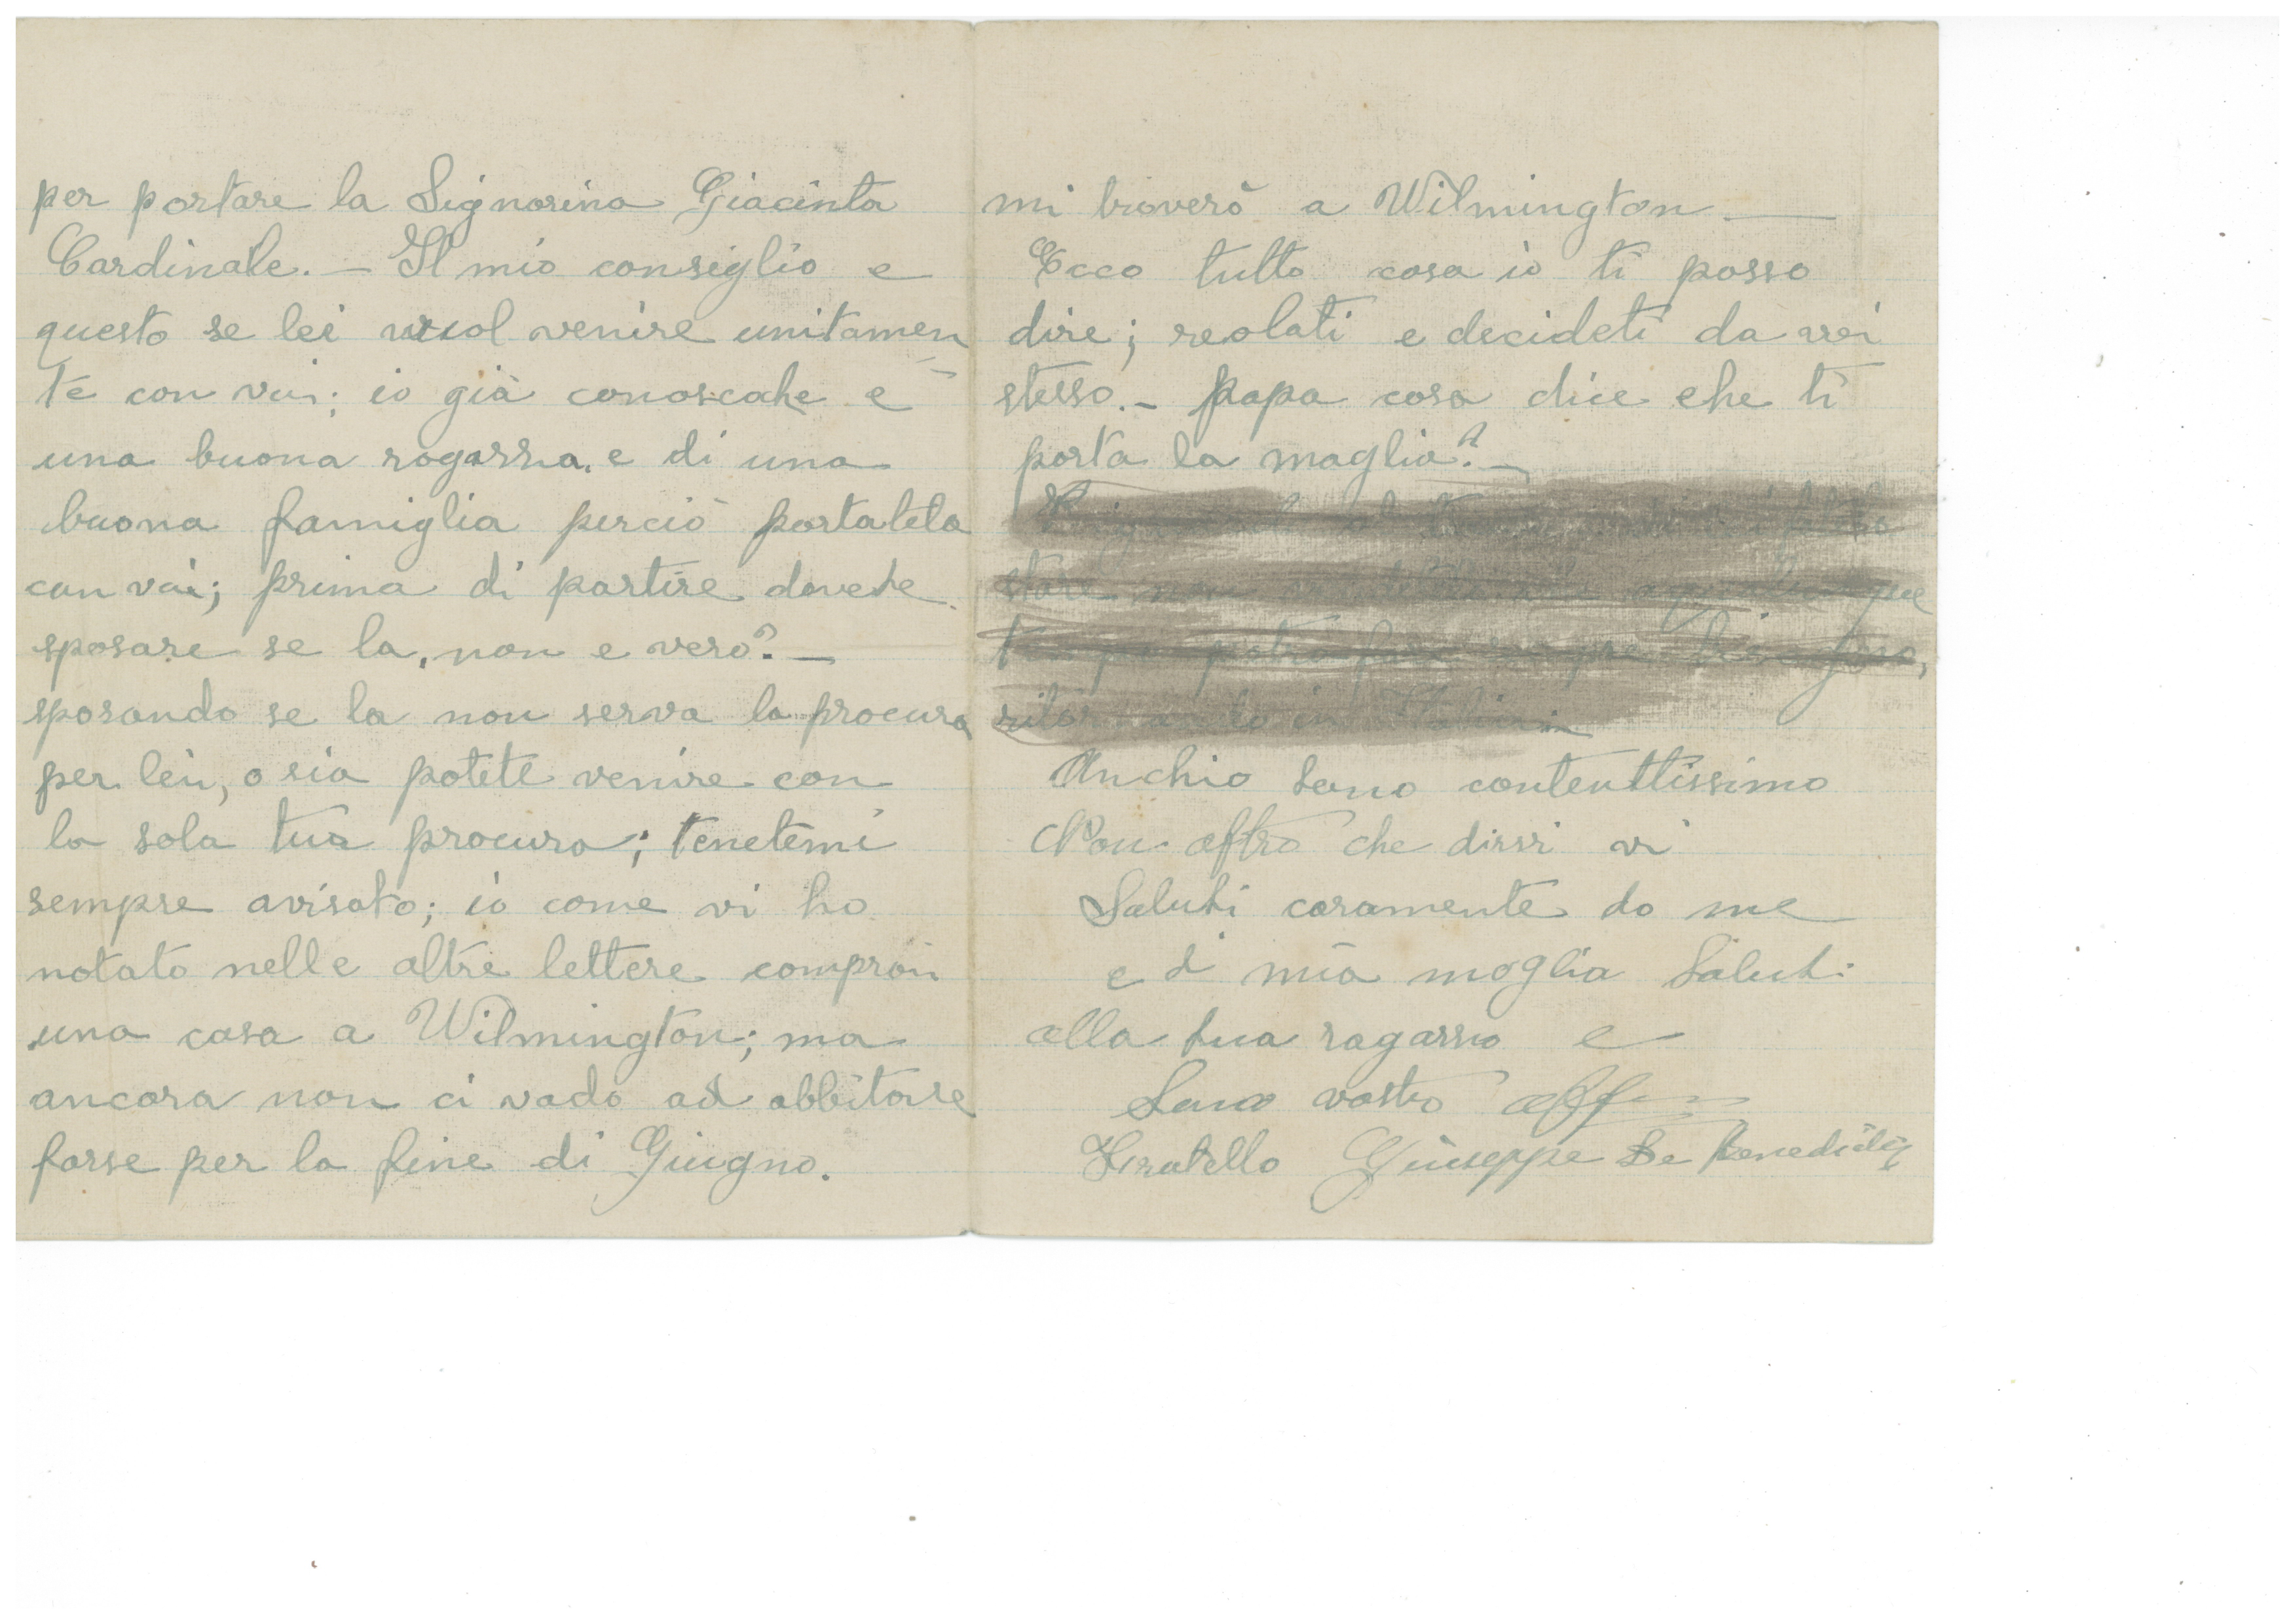 per portare la Signorina Giacinta
Cardinale. — Il mio consiglio e
questo se lei vuol venire unitamen
te con voi; io già conosco che è
una buona ragazza. e di una
buona famiglia perciò portatela
con voi; prima di partire dovete
sposare se la, non e vero? —
sposando se la non serva la procura
per lei, o sia potete venire con
la sola tua procura; tenetemi
sempre avisato; io come vi ho
notato nelle altre lettere comprai
una casa a Wilmington; ma
ancora non ci vado ad abbitare
forse per la fine di Giugno.
mi troverò a Wilmington —
Ecco tutto cosa io ti posso
dire; reolati e decideti da voi
stesso. — Papa cosa dice che ti
porta la moglia? —
stare non
potra fare sempre
in
Anchio sono contenttissimo
Non altro che dirvi vi
Saluti caramente da me
e d mia moglia Saluti
alla tua ragazza e
Sono vostro aff
Fratello Giuseppe De Benedictis